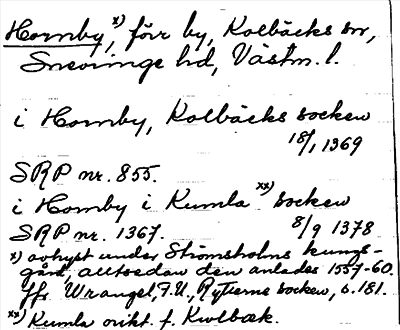 Hornby,ˣ⁾ förr by, Kolbäcks sn,
Snevringe hd, Västm. l.
i Hornby, Kolbäcks socken
18/1 1369
SRP nr. 855.
i Hornby i Kumla ˣˣ⁾ socken
SRP nr. 1367. 8/9 1378
x) avhyst under Strömsholms kungs-
gård, alltsedan den anlades 1557-60.
Jfr Wrangel, F.U., Rytterns socken, s. 181.
xx) Kumla orikt. f. Kwlbæk.